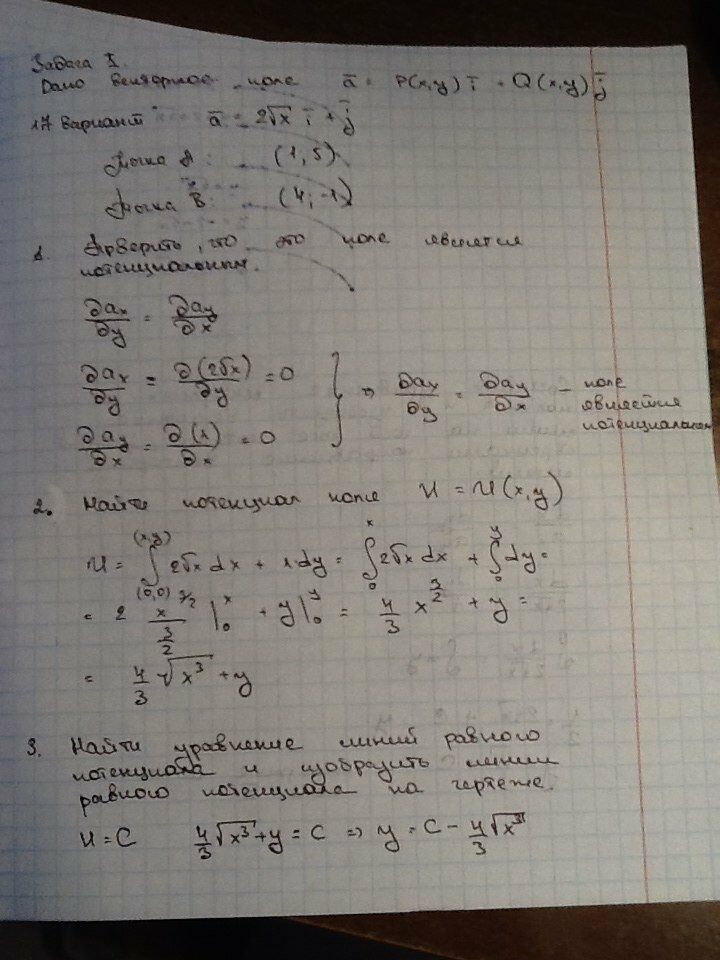 Задача I.
Дано векторное поле a̅ = P(x,y) i̅ + Q(x,y) j̅
17 вариант a̅ = 2√x i̅ + j̅
Точка A: (1, 5)
Точка B: (4; -1)
1. Проверить, что это поле является
потенциальным.
∂aₓ/∂y = ∂a_y/∂x
∂aₓ/∂y = ∂(2√x)/∂y = 0
∂a_y/∂x = ∂(1)/∂x = 0 } ⇒ ∂aₓ/∂y = ∂a_y/∂x – поле является потенциальным
2. Найти потенциал поля U = U(x,y)
U = ∫_(0,0)^(x,y) 2√x dx + 1·dy = ∫_0^x 2√x dx + ∫_0^y dy =
= 2 x^(3/2)/(3/2) |_0^x + y|_0^y = 4/3 x^(3/2) + y =
= 4/3 √x³ + y
3. Найти уравнение линий равного
потенциала и изобразить линии
равного потенциала на чертеже.
U = C 4/3 √x³ + y = C ⇒ y = C - 4/3 √x³